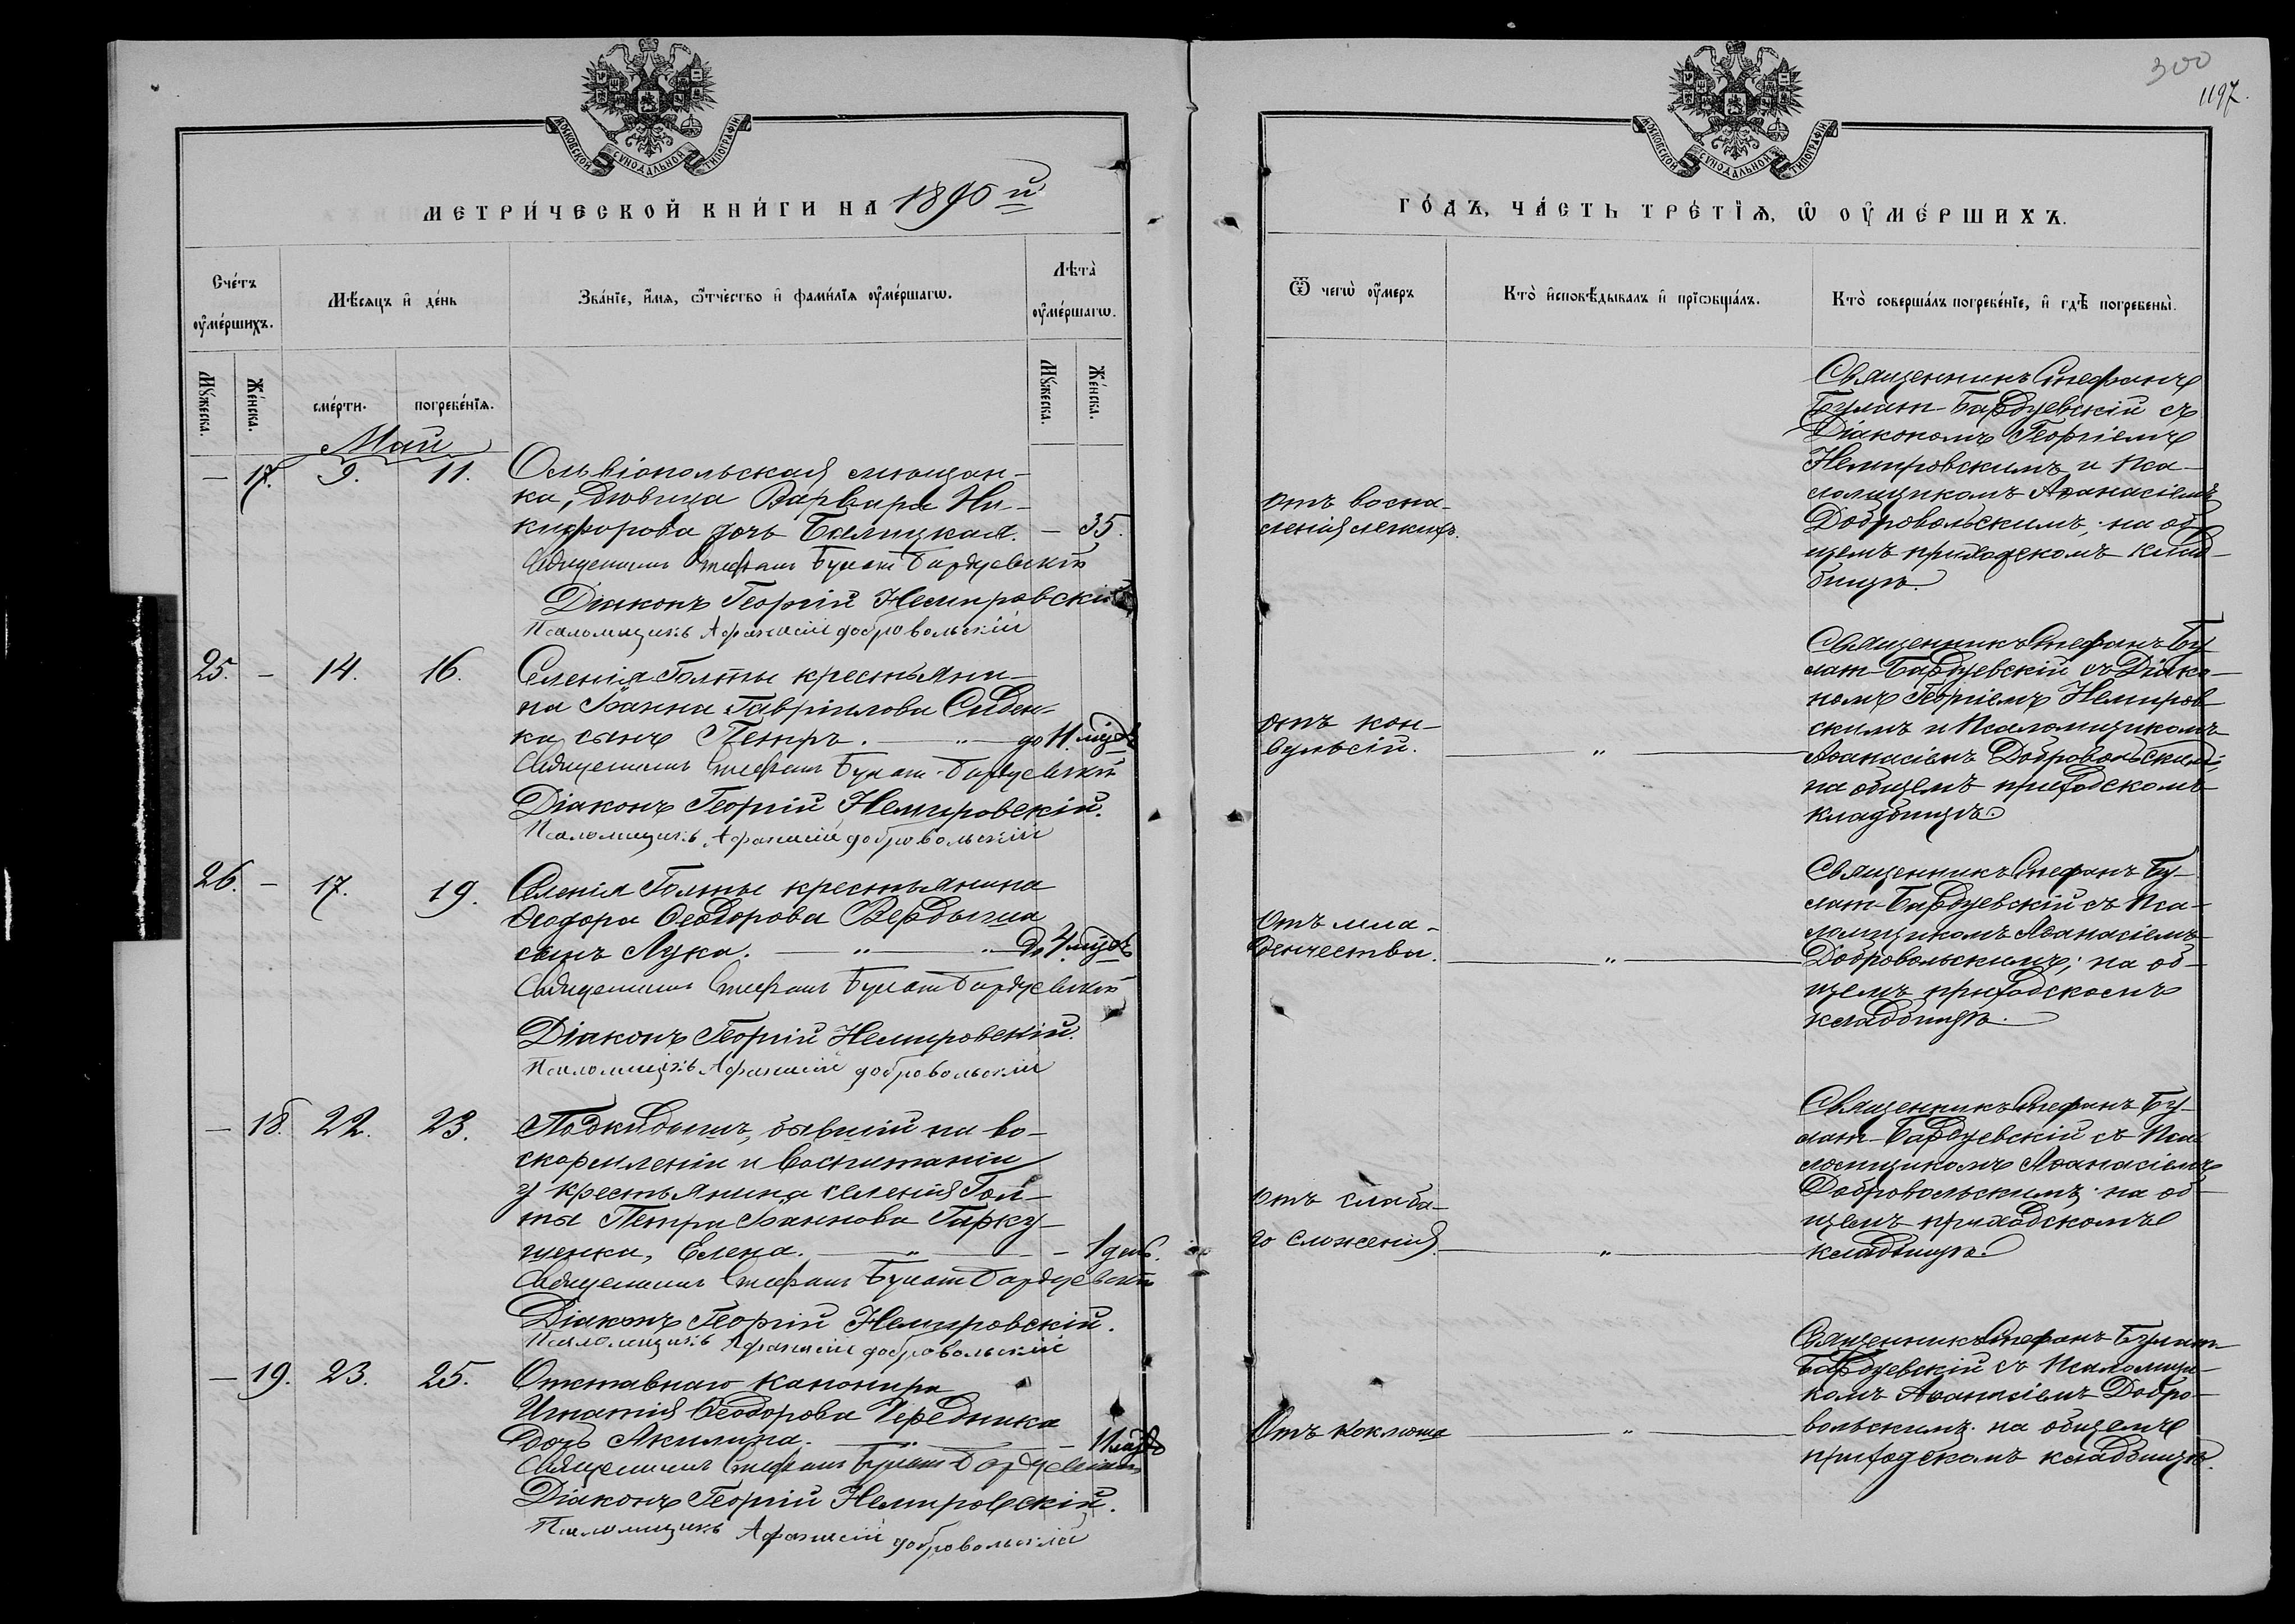 300
1197.
МОСКОВСКОЙ СУНОДАЛЬНОЙ ТИПОГРАФІИ
МОСКОВСКОЙ СУНОДАЛЬНОЙ ТИПОГРАФІИ
МЕТРИ́ЧЕСКОЙ КНИ́ГИ НА 1890й
ГО́ДЪ, ЧА́СТЬ ТРЕ́ТІѦ, Ѡ ОУМЕ́РШИХЪ.
Сче́тъ оуме́ршихъ.
Мѣ́сяцъ и де́нь
Зва́ніе, и́мя, ѻ́тчество и фами́лія оуме́ршагѡ.
Лѣта̀ оуме́ршагѡ.
Ѿ чегѡ̀ оу́меръ
Кто̀ исповѣ́дывалъ и пріѡбща́лъ.
Кто̀ соверша́лъ погребе́ніе, и гдѣ̀ погребены̀.
Му́жеска.
Же́нска.
сме́рти.
погребе́нія.
Му́жеска.
Же́нска.
Май
— 17. 9. 11.
Ольвіопольская мѣщан-
ка, дѣвица Варвара Ни-
кифорова дочь Балицкая. — 35.
Священникъ Стефанъ Булат-Бардуевскій
Діаконъ Георгій Немировскій
Псаломщикъ Афанасій Добровольскій
отъ воспа-
ленія легкихъ.
Священникъ Стефанъ
Булат-Бардуевскій съ
Діакономъ Георгіемъ
Немировскимъ и Пса-
ломщикомъ Аѳанасіемъ
Добровольскимъ; на об-
щемъ приходскомъ клад-
бищѣ.
25. — 14. 16.
Селенія Голты крестьяни-
на Іоанна Гавріилова Сиден-
ка сынъ Петръ. — „ —
Священникъ Стефанъ Булат-Бардуевскій
Діаконъ Георгій Немировскій.
Псаломщикъ Афанасій Добровольскій
отъ кон-
вульсій. — „ —
Священникъ Стефанъ Бу-
лат-Бардуевскій съ Діако-
номъ Георгіемъ Немиров-
скимъ и Псаломщикомъ
Аѳанасіемъ Добровольскимъ;
на общемъ приходскомъ
кладбищѣ.
26. — 17. 19.
Селенія Голты крестьянина
Ѳеодора Ѳеодорова Вердыша
сынъ Лука. — „ —
Священникъ Стефанъ Булат-Бардуевскій
Діаконъ Георгій Немировскій.
Псаломщикъ Афанасій Добровольскій
Отъ мла-
денчества. — „ —
Священникъ Стефанъ Бу-
лат-Бардуевскій съ Пса-
ломщикомъ Аѳанасіемъ
Добровольскимъ; на об-
щемъ приходскомъ
кладбищѣ.
— 18. 22. 23.
Подкидышъ, бывшій на во-
скормленіи и воспитаніи
у крестьянина селенія Гол-
ты Петра Іоаннова Гарку-
шенка, Елена. — „ — 1 день.
Священникъ Стефанъ Булат-Бардуевскій
Діаконъ Георгій Немировскій.
Псаломщикъ Афанасій Добровольскій
отъ слаба-
го сложенія. — „ —
Священникъ Стефанъ Бу-
лат-Бардуевскій съ Пса-
ломщикомъ Аѳанасіемъ
Добровольскимъ; на об-
щемъ приходскомъ
кладбищѣ.
— 19. 23. 25.
Отставнаго канонира
Игнатія Ѳеодорова Чередника
дочь Акилина. — „ —
Священникъ Стефанъ Булат-Бардуевскій
Діаконъ Георгій Немировскій.
Псаломщикъ Афанасій Добровольскій
Отъ коклюша — „ —
Священникъ Стефанъ Булат-
Бардуевскій съ Псаломщи-
комъ Аѳанасіемъ Добро-
вольскимъ на общемъ
приходскомъ кладбищѣ.